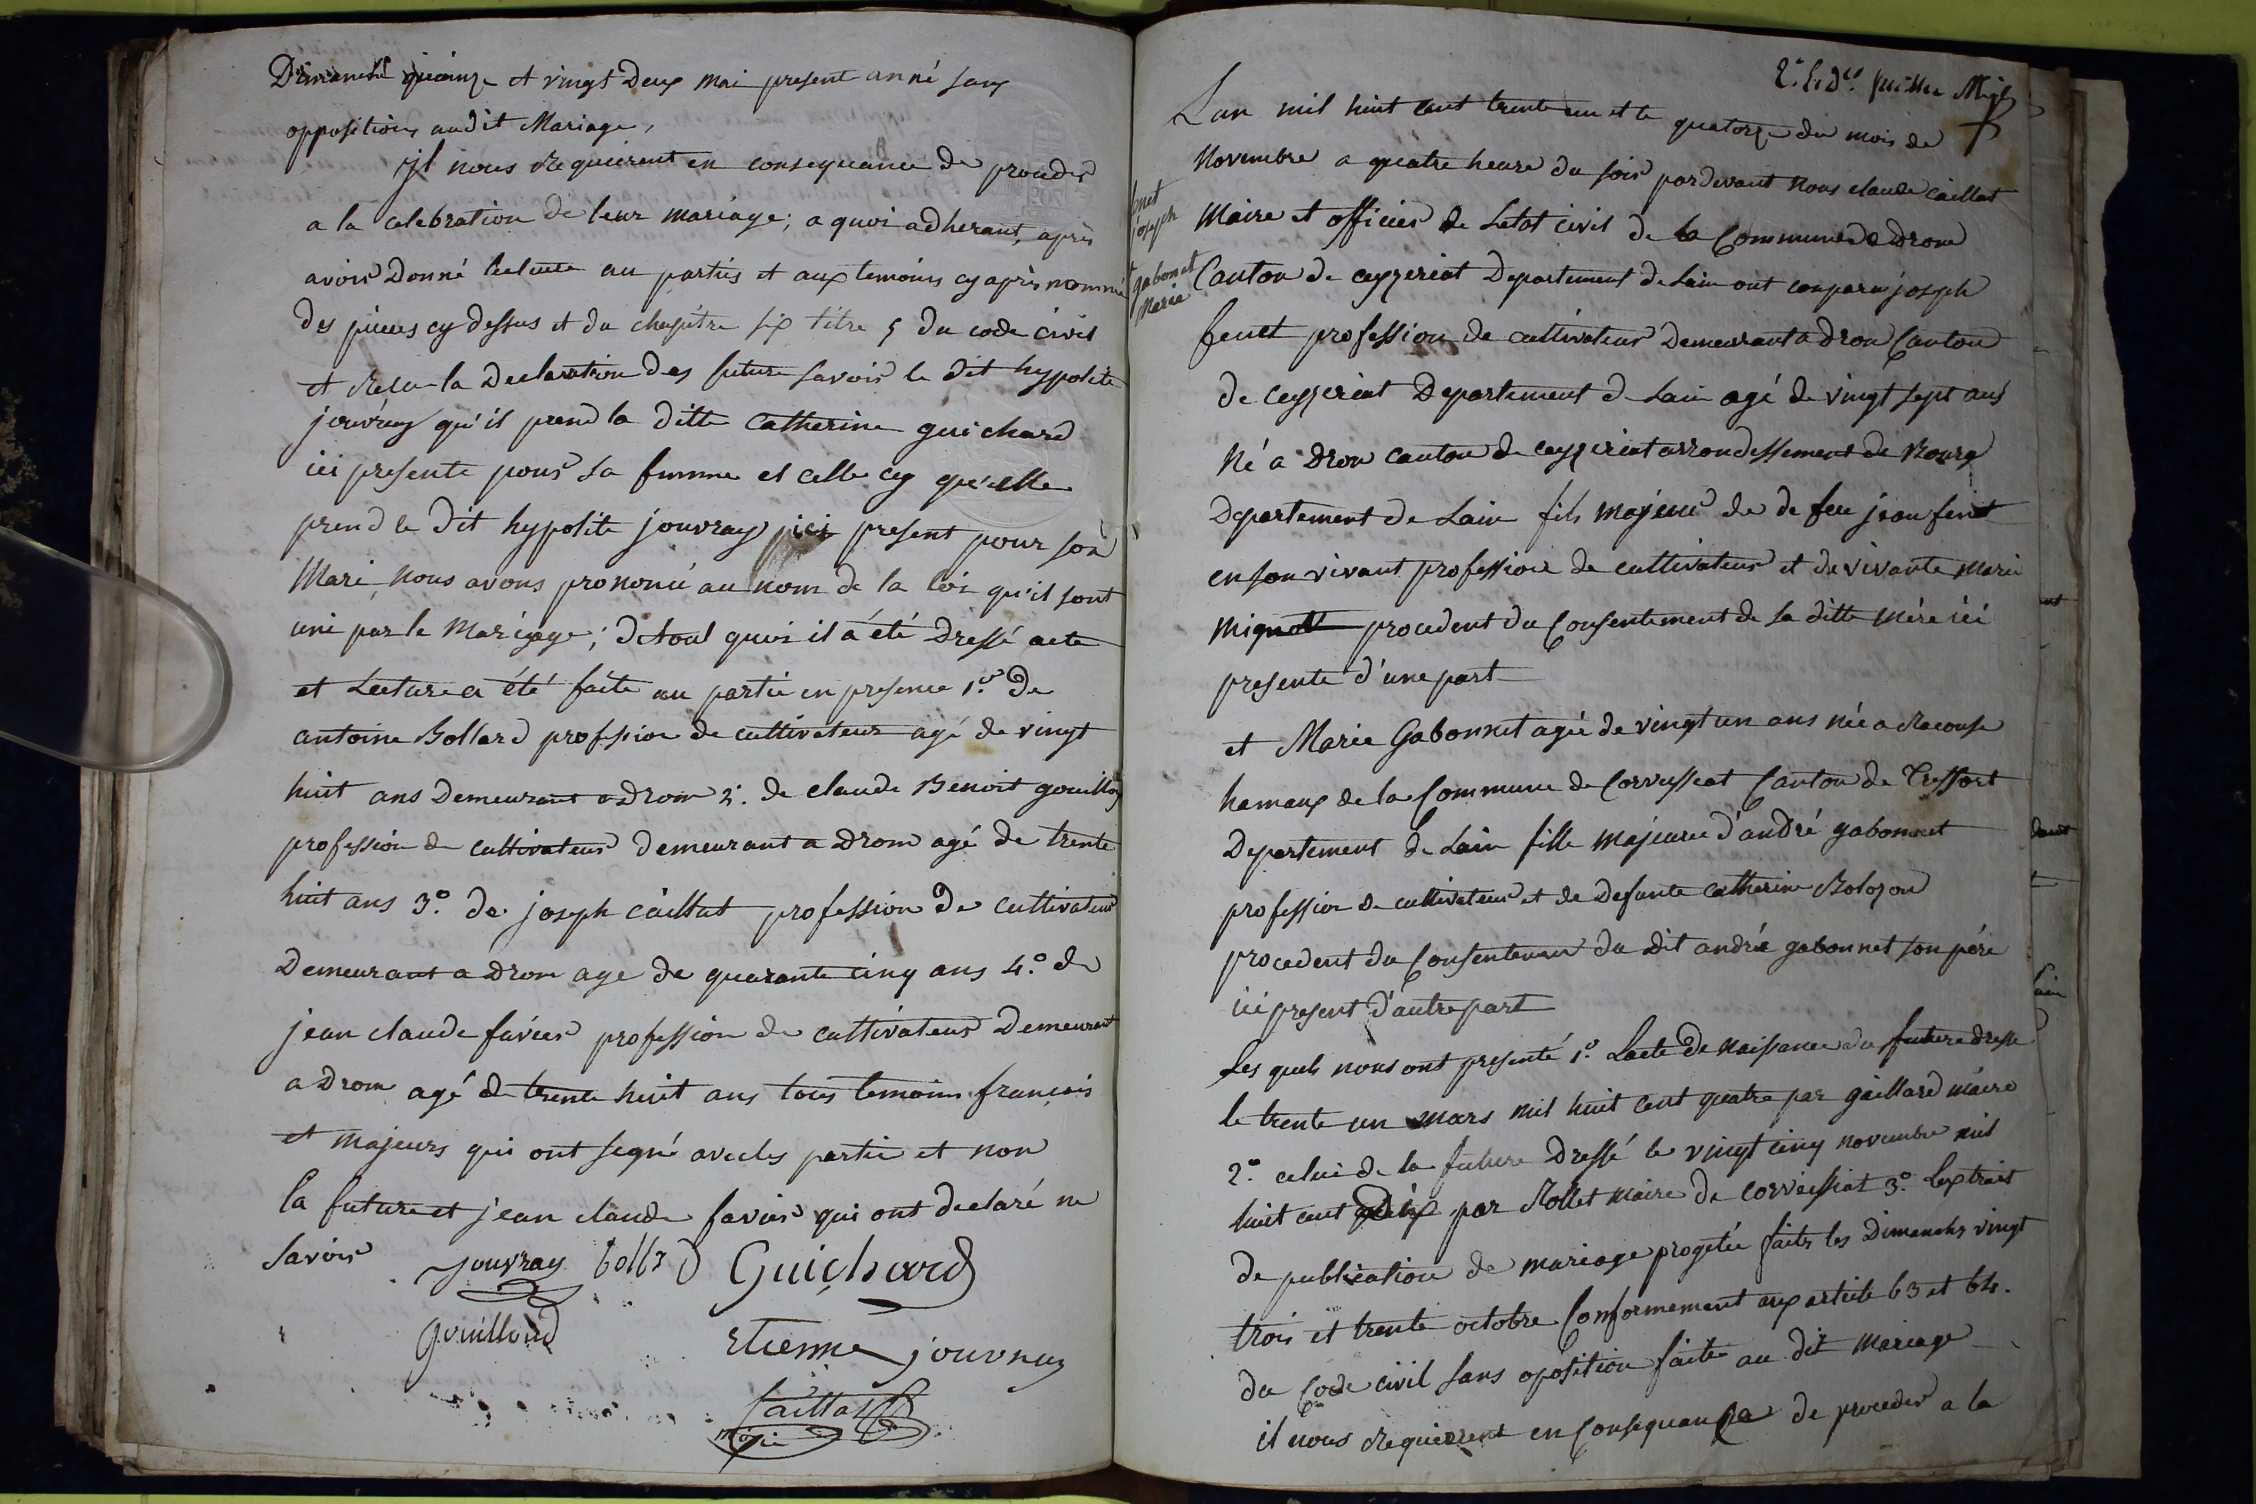 Dimanche quinze et vingt Deux mai present anné sans
opposition audit Mariage,
jl nous requierent en consequance de proceder
a la celebration de leur mariage; a quoi adherant, après
avoir Donné lecture au partiés et aux temoins cy après nommé
des pieces cy dessus et du chapitre six titre 5 du code civil
et recu la Declaration des future savoir le dit hyposite
jouvray qu'il prend la ditte Catherine guichard
ici presente pour sa femme et celle cy qu'elle
prend le dit hyposite jouvray ici present pour son
Mari, Nous avons prononcé au nom de la loi qu'il sont
uni par le Mariage; de toul quoi il a été Dressé acte
et Lecture a été faite au partie en presence 1.º de
antoine Bollard profession de cultivateur agé de vingt
huit ans Demeurant a drom 2.º de claude Benoit gouilloy
profession de cultivateur demeurant a drom agé de trente
huit ans 3.º de joseph caillat profession de cultivateur
Demeurant a Drom age de quarante cinq ans 4.º de
jean claude favier profession de cultivateur Demeurant
a Drom agé de trente huit ans tous temoins francais
et majeurs qui ont segné avec les partie et non
la future et jean claude favier qui ont declaré ne
savoir
jouvray bollard Guichard
gouilloud Etienne jouvray
Caillat
Maire
2.e
juillet
Lan mil huit cent trente un et le quatorze du mois de
Novembre a quatre heure du soir pardevant nous claude caillat
Maire et officier de Letat civil de la Commune de drom
fenet
joseph
et
gabonet
Marie
Canton de ceyzeriat Departement de Lain ont conparu joseph
fenet profession de cultivateur Demeurant a drom Canton
de ceyzeriat Departement de Lain agé de vingt sept ans
Né a drom canton de ceyzeriat arrondessement de Bourg
Departement de Lain fils majeur de de feu jean fenet
en son vivant profession de cultivateur et de vivante marie
mignot procedent du Consentement de sa ditte mére ici
presente d'une part
et Marie Gabonnet agée de vingt un ans née a Racouse
hamaux de la Commune de Corvessiat Canton de Treffort
Departement de Lain fille majeure d'andré gabonnet
profession de cultivateur et de defunte catherine Bolozon
procedent du Consentement du dit andrée gabonnet son pére
ici present d'autre part
Les quels nous ont presenté 1.º Lacte de naissance du future dressé
le trente un mars mil huit cent quatre par gaillard maire
2.º celui de la future Dressé le vingt cinq novembre mil
huit cent dix par Rollet maire de corveissiat 3.º Lextrait
de publication de mariage progetée faits les Dimenchs vingt
trois et trente octobre Conformement aux article 63 et 64.
du Code civil sans oposition faite au dit mariage
il nous requierent en Consequance de proceder a la